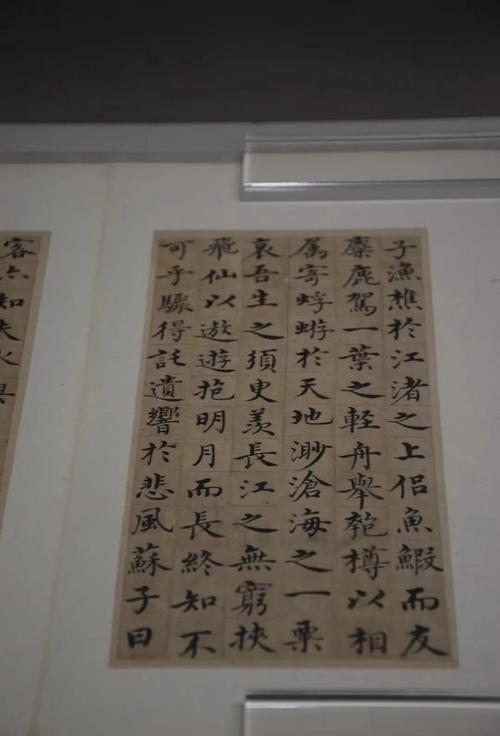 子漁樵於江渚之上侶魚鰕而友
麋鹿駕一葉之輕舟舉匏樽以相
属寄蜉蝣於天地渺滄海之一粟
哀吾生之須臾羨長江之無窮挾
飛仙以遨遊抱明月而長終知不
可乎驟得託遺響於悲風蘇子曰
客亦知夫水與